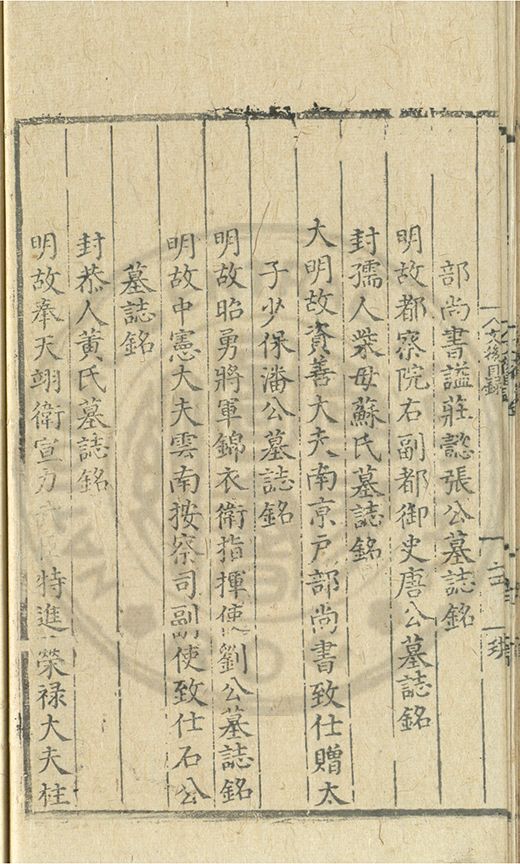 文後目錄
部尚書謚莊懿張公墓誌銘
明故都察院右副都御史唐公墓誌銘
封孺人柴母蘇氏墓誌銘
大明故資善大夫南京戸部尚書致仕贈太
子少保潘公墓誌銘
明故昭勇將軍錦衣衛指揮使劉公墓誌銘
明故中憲大夫雲南按察司副使致仕石公
墓誌銘
封恭人黃氏墓誌銘
明故奉天翊衛宣力武臣特進榮禄大夫柱